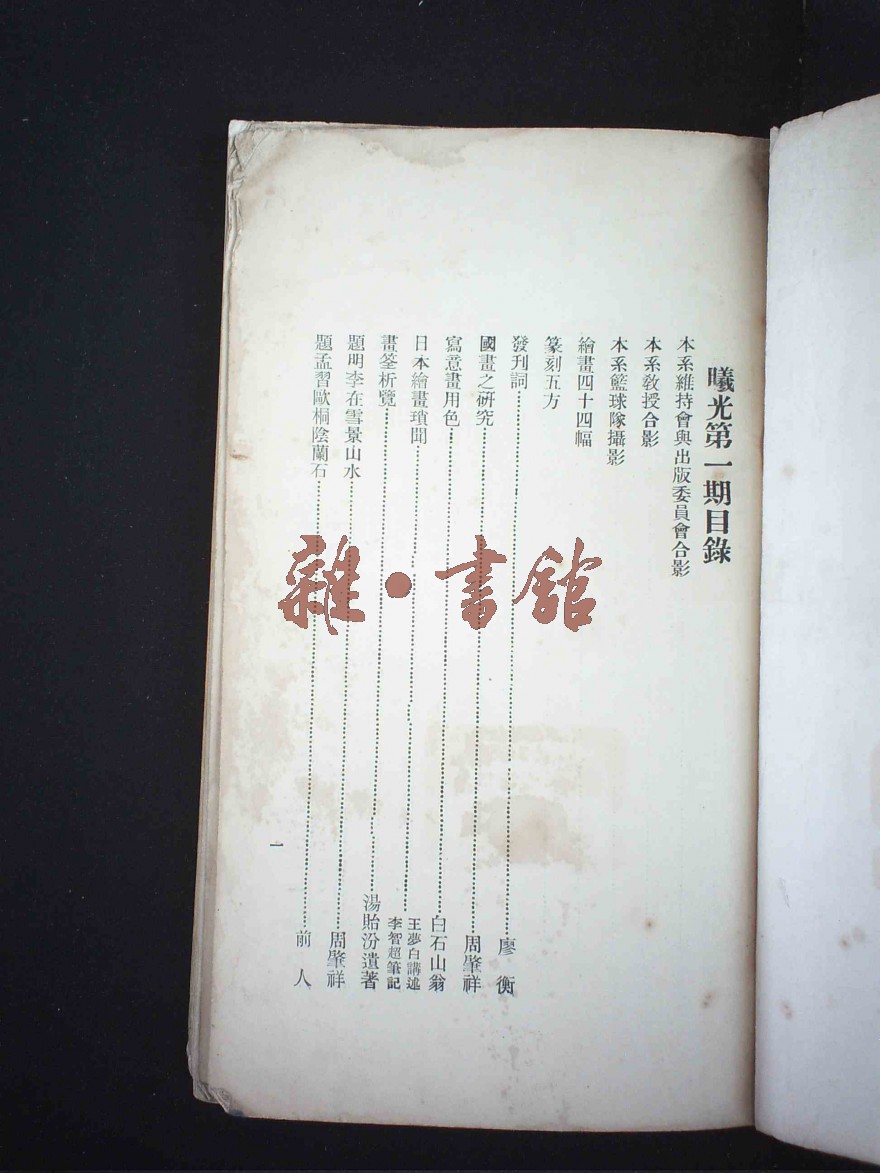 曦光第一期目錄
本系維持會與出版委員會合影
本系敎授合影
本系籃球隊攝影
繪畫四十四幅
篆刻五方
發刊詞⋯⋯⋯⋯⋯⋯⋯⋯廖 衡
國畫之硏究⋯⋯⋯⋯⋯⋯⋯⋯周肇祥
寫意畫用色⋯⋯⋯⋯⋯⋯⋯⋯白石山翁
日本繪畫瑣聞⋯⋯⋯⋯⋯⋯⋯⋯王夢白講述
李智超筆記
畫筌析覽⋯⋯⋯⋯⋯⋯⋯⋯湯貽汾遺著
題明李在雪景山水⋯⋯⋯⋯⋯⋯⋯⋯周肇祥
題孟習歐桐陰蘭石⋯⋯⋯⋯⋯⋯⋯⋯前 人
一
雜·書館